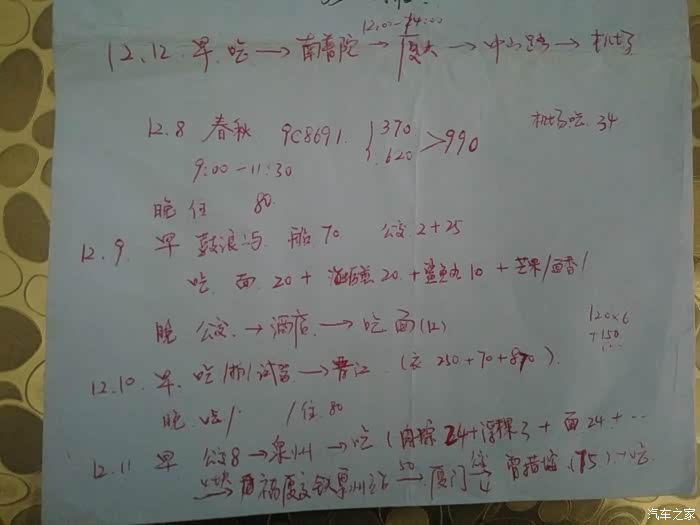 12:00-14:00
12.12 早.吃→南普陀→厦大→中山路→机场
12.8 春秋 9C8691. {370 620 >990 机场吃 34
9:00-11:30
晚 住 80.
12.9 早 鼓浪屿 船70 公交 2+25
吃 面 20+海蛎煎 20.+鲨鱼丸 10+芒果/茴香/
晚 公交→酒店→吃面(12)
120×6
+150
...
12.10. 早. 吃 → 晋江 (衣 250+70+870).
晚 吃/ /住 80
12.11 早 公交8→泉州→吃(肉粽 24+ + 面24+...
→ 泉州 50→厦门→ 曾措垵(75)+吃.
汽车之家